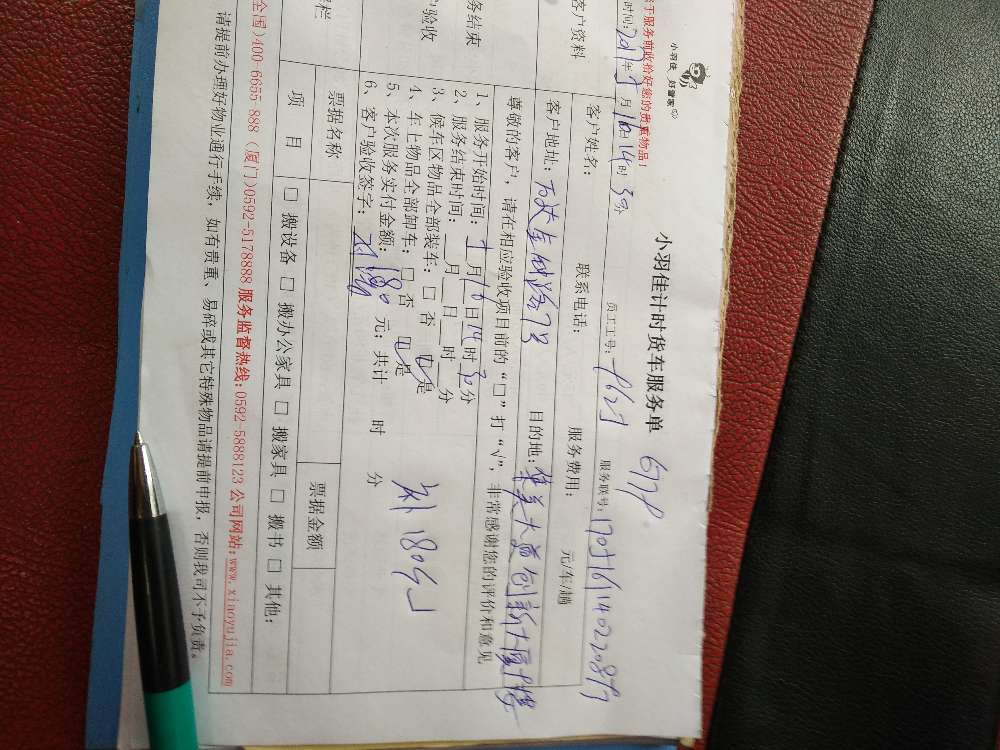 小羽佳 好管家
小羽佳计时货车服务单
于服务前收拾好您的贵重物品！
时间：2017年 月16日14时30分
员工工号：
服务联号：
客户资料
客户姓名：
联系电话：
服务费用： 元/车/趟
客户地址：万达
目的地：华美 创新大厦
务结束
户验收
尊敬的客户，请在相应验收项目前的“□”打“√”，非常感谢您的评价和意见
1、服务开始时间： 月16日14时30分
2、服务结束时间： 月 日 时 分
3、候车区物品全部装车：□ 否 □是
4、车上物品全部卸车：□ 否 □是
5、本次服务实付金额：180元；共计 时 分
6、客户验收签字：
180
栏
票据名称
票据金额
项 目
□ 搬设备 □ 搬办公家具 □ 搬家具 □ 搬书 □ 其他：
全国)400-6655-888（厦门)0592-5178888 服务监督热线：0592-5888123 公司网站：www.xiaoyujia.com
请提前办理好物业通行手续，如有贵重、易碎或其它特殊物品请提前申报，否则我司不予负责。